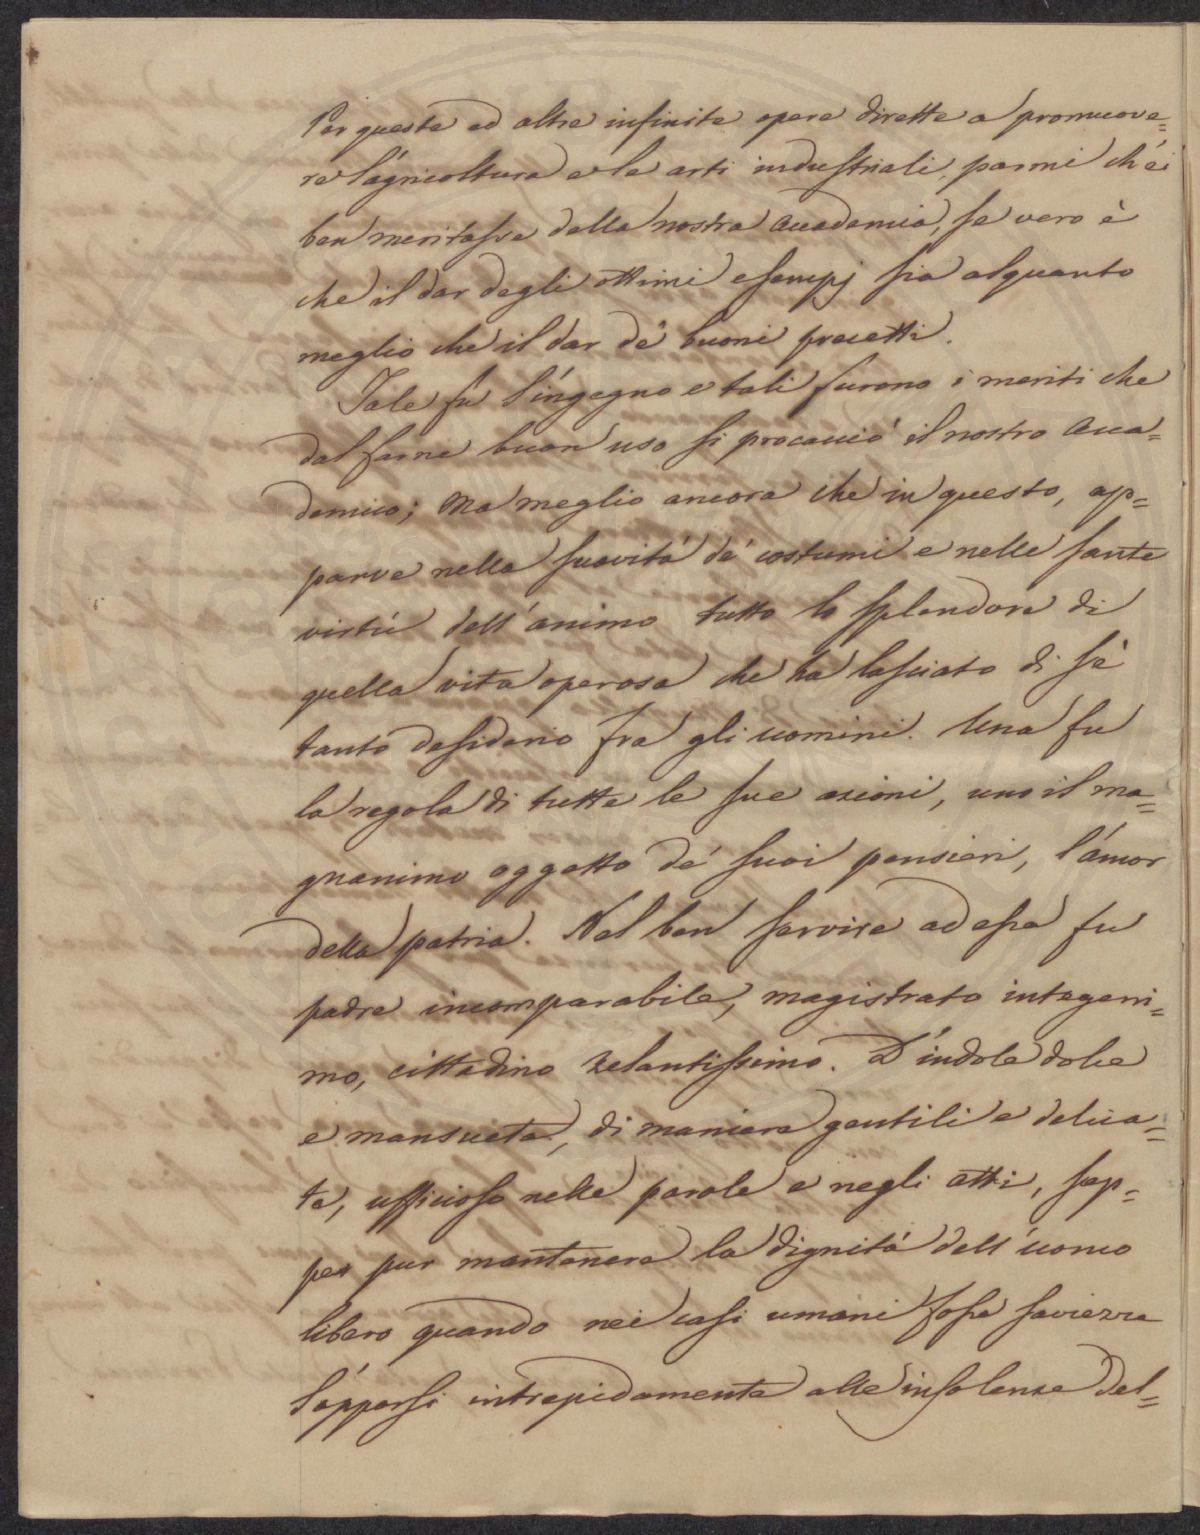 Per queste ed altre infinite opere dirette a promuove=
re l'agricoltura e le arti industriali, parmi ch'ei
ben meritasse della nostra Accademia, se vero è
che il dar degli ottimi esempj sia alquanto
meglio che il dar de' buoni precetti.
Tale fu l'ingegno e tali furono i meriti che
dal farne buon uso si procacciò il nostro Acca=
demico; Ma meglio ancora che in questo, ap=
parve nella suavità de' costumi e nelle sante
virtù dell'animo tutto lo splendore di
quella vita operosa che ha lasciato di sè
tanto desiderio fra gli uomini. Una fu
la regola di tutte le sue azioni, uno il ma=
gnanimo oggetto de' suoi pensieri, l'amor
della patria. Nel ben servire ad essa fu
padre incomparabile, magistrato integerri=
mo, cittadino zelantissimo. D'indole dolce
e mansueta, di maniere gentili e delica=
te, ufficioso nelle parole e negli atti, sep=
pe pur mantenere la dignità dell'uomo
libero quando nei casi umani fosse saviezza
l'opporsi intrepidamente alle insolenze del=